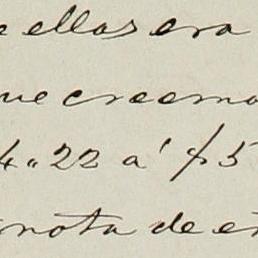 e ellas era
ue creemo
4" 22 a' $5
nota de e